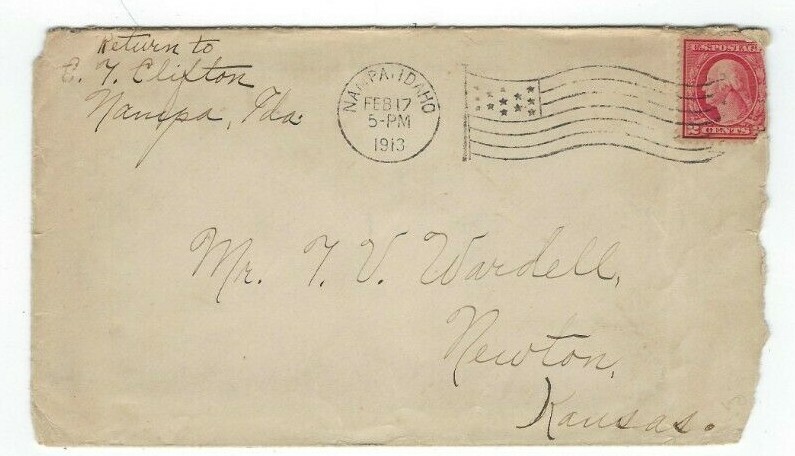 Return to
E. T. Clifton
Nampa, Ida.
NAMPA, IDAHO
FEB 17
5-PM
1913
U.S. POSTAGE
2 CENTS 2
Mr. T. V. Wardell,
Newton,
Kansas.